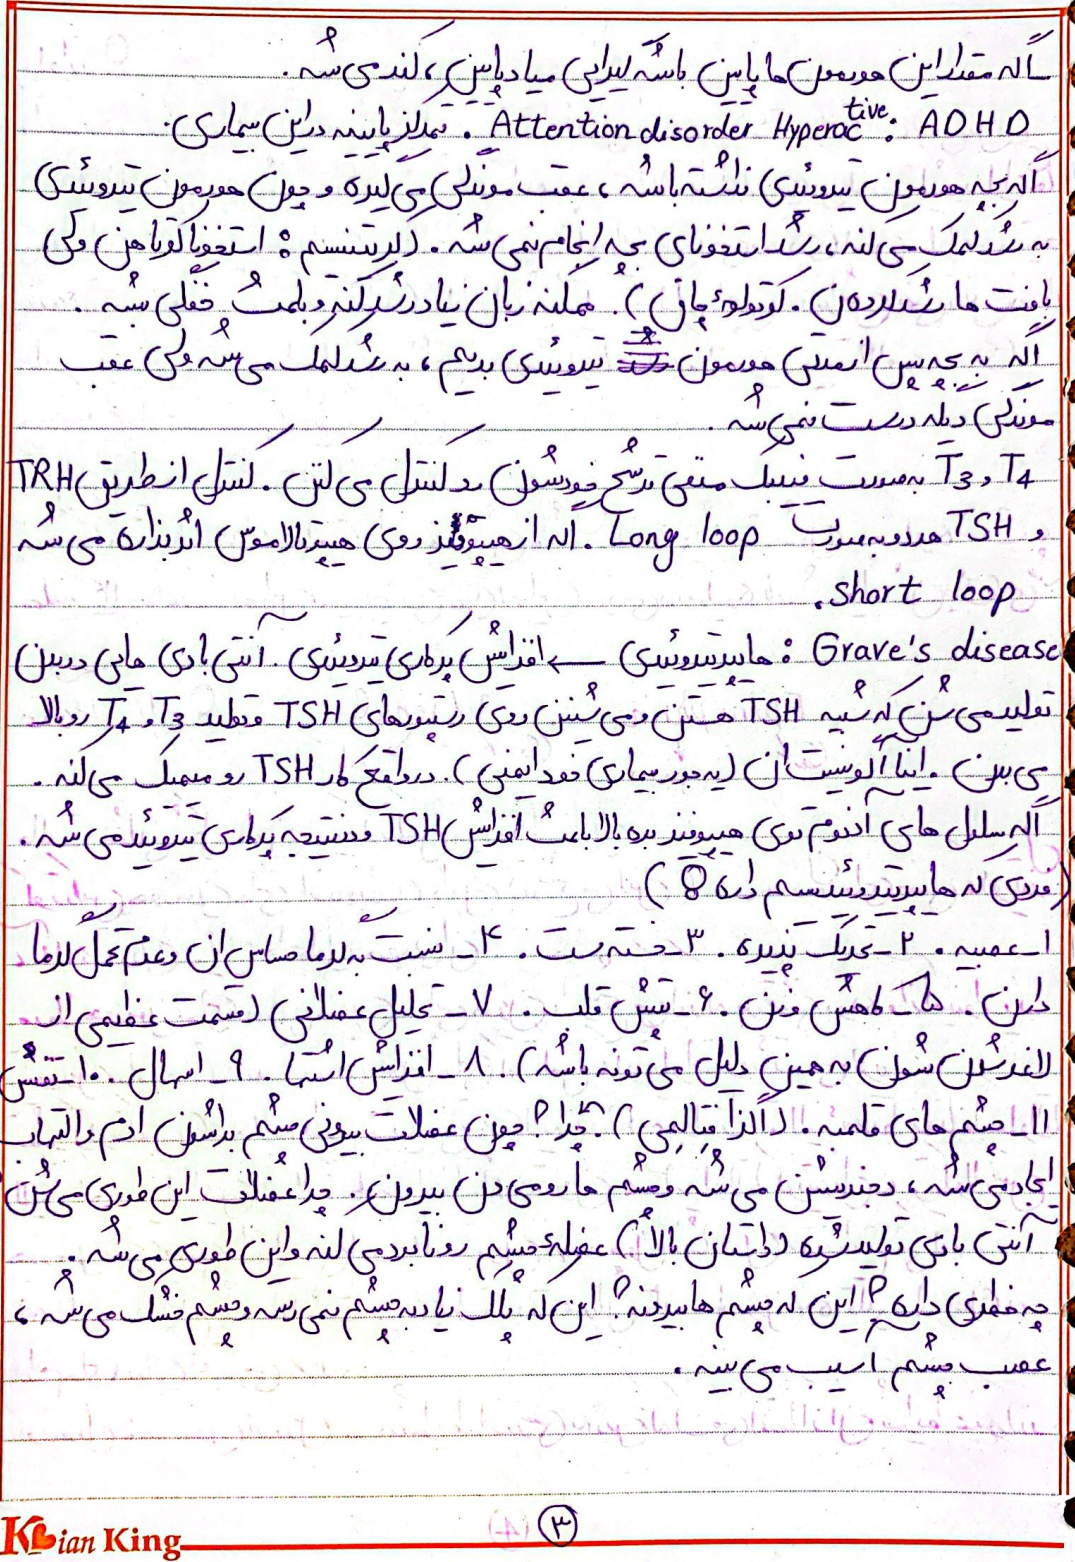 اگه مقدار این هورمون ها پایین باشه گیرایی میاد پایین، کند می شه.
ADHD : Attention disorder Hyperactive. تمرکز پایینه در این بیماری.
اگه بچه هورمون تیروئیدی نداشته باشه، عقب موندگی می گیره و چون هورمون تیروئیدی
به رشد کمک می کنه، رشد استخونای بچه انجام نمی شه. (کرتنیسم : استخونا کوتاهن ولی
بافت ها رشد کرده ن. کوتولوۀ چاق). ممکنه زبان زیاد رشد کنه و باعث خفگی بشه.
اگه به بچه پس از مدتی هورمون تیروئیدی بدیم، به رشد کمک می شه ولی عقب
موندگی دیگه درست نمی شه.
T4 و T3 به صورت فیدبک منفی ترشح خودشون رو کنترل می کنن. کنترل از طریق TRH
و TSH هردو به صورت Long loop. اگه از هیپوفیز روی هیپوتالاموس اثر بذاره می شه
short loop.
Grave's disease : هایپرتیروئیدی ← افزایش پرکاری تیروئیدی. آنتی بادی هایی در بدن
تولید می شن که شبیه TSH هستن و می شینن روی رسپتورهای TSH و تولید T3 و T4 رو بالا
می برن. اینا آگونیست ان (یه جور بیماری خود ایمنی). در واقع کار TSH رو میمیک می کنه.
اگه سلول های آدنوم توی هیپوفیز بره بالا باعث افزایش TSH و در نتیجه پرکاری تیروئید می شه.
(فردی که هایپرتیروئیسم داره :)
۱- عصبیه. ۲- تحریک پذیره. ۳- خسته ست. ۴- نسبت به گرما حساس ان و عدم تحمل گرما
دارن. ۵- کاهش وزن. ۶- تپش قلب. ۷- تحلیل عضلانی (قسمت عظیمی از
لاغر شدن شون به همین دلیل می تونه باشه). ۸- افزایش اشتها. ۹- اسهال. ۱۰- تنفس
۱۱- چشم های قلمبه. (اگزآفتالمی). چرا؟ چون عضلات بیرونی چشم براشون ادم و التهاب
ایجاد می شه، دجنریشن می شه و چشم ها رو می دن بیرون. چرا عضلات این طوری می شن؟
آنتی بادی تولید شده (داستان بالا) عضلۀ چشم رو نابود می کنه و این طوری می شه.
چه خطری داره؟ این که چشم ها بیرونه؟ این که پلک زیاد به چشم نمی رسه و چشم خشک می شه،
عصب چشم آسیب می بینه.
۳
Kian King